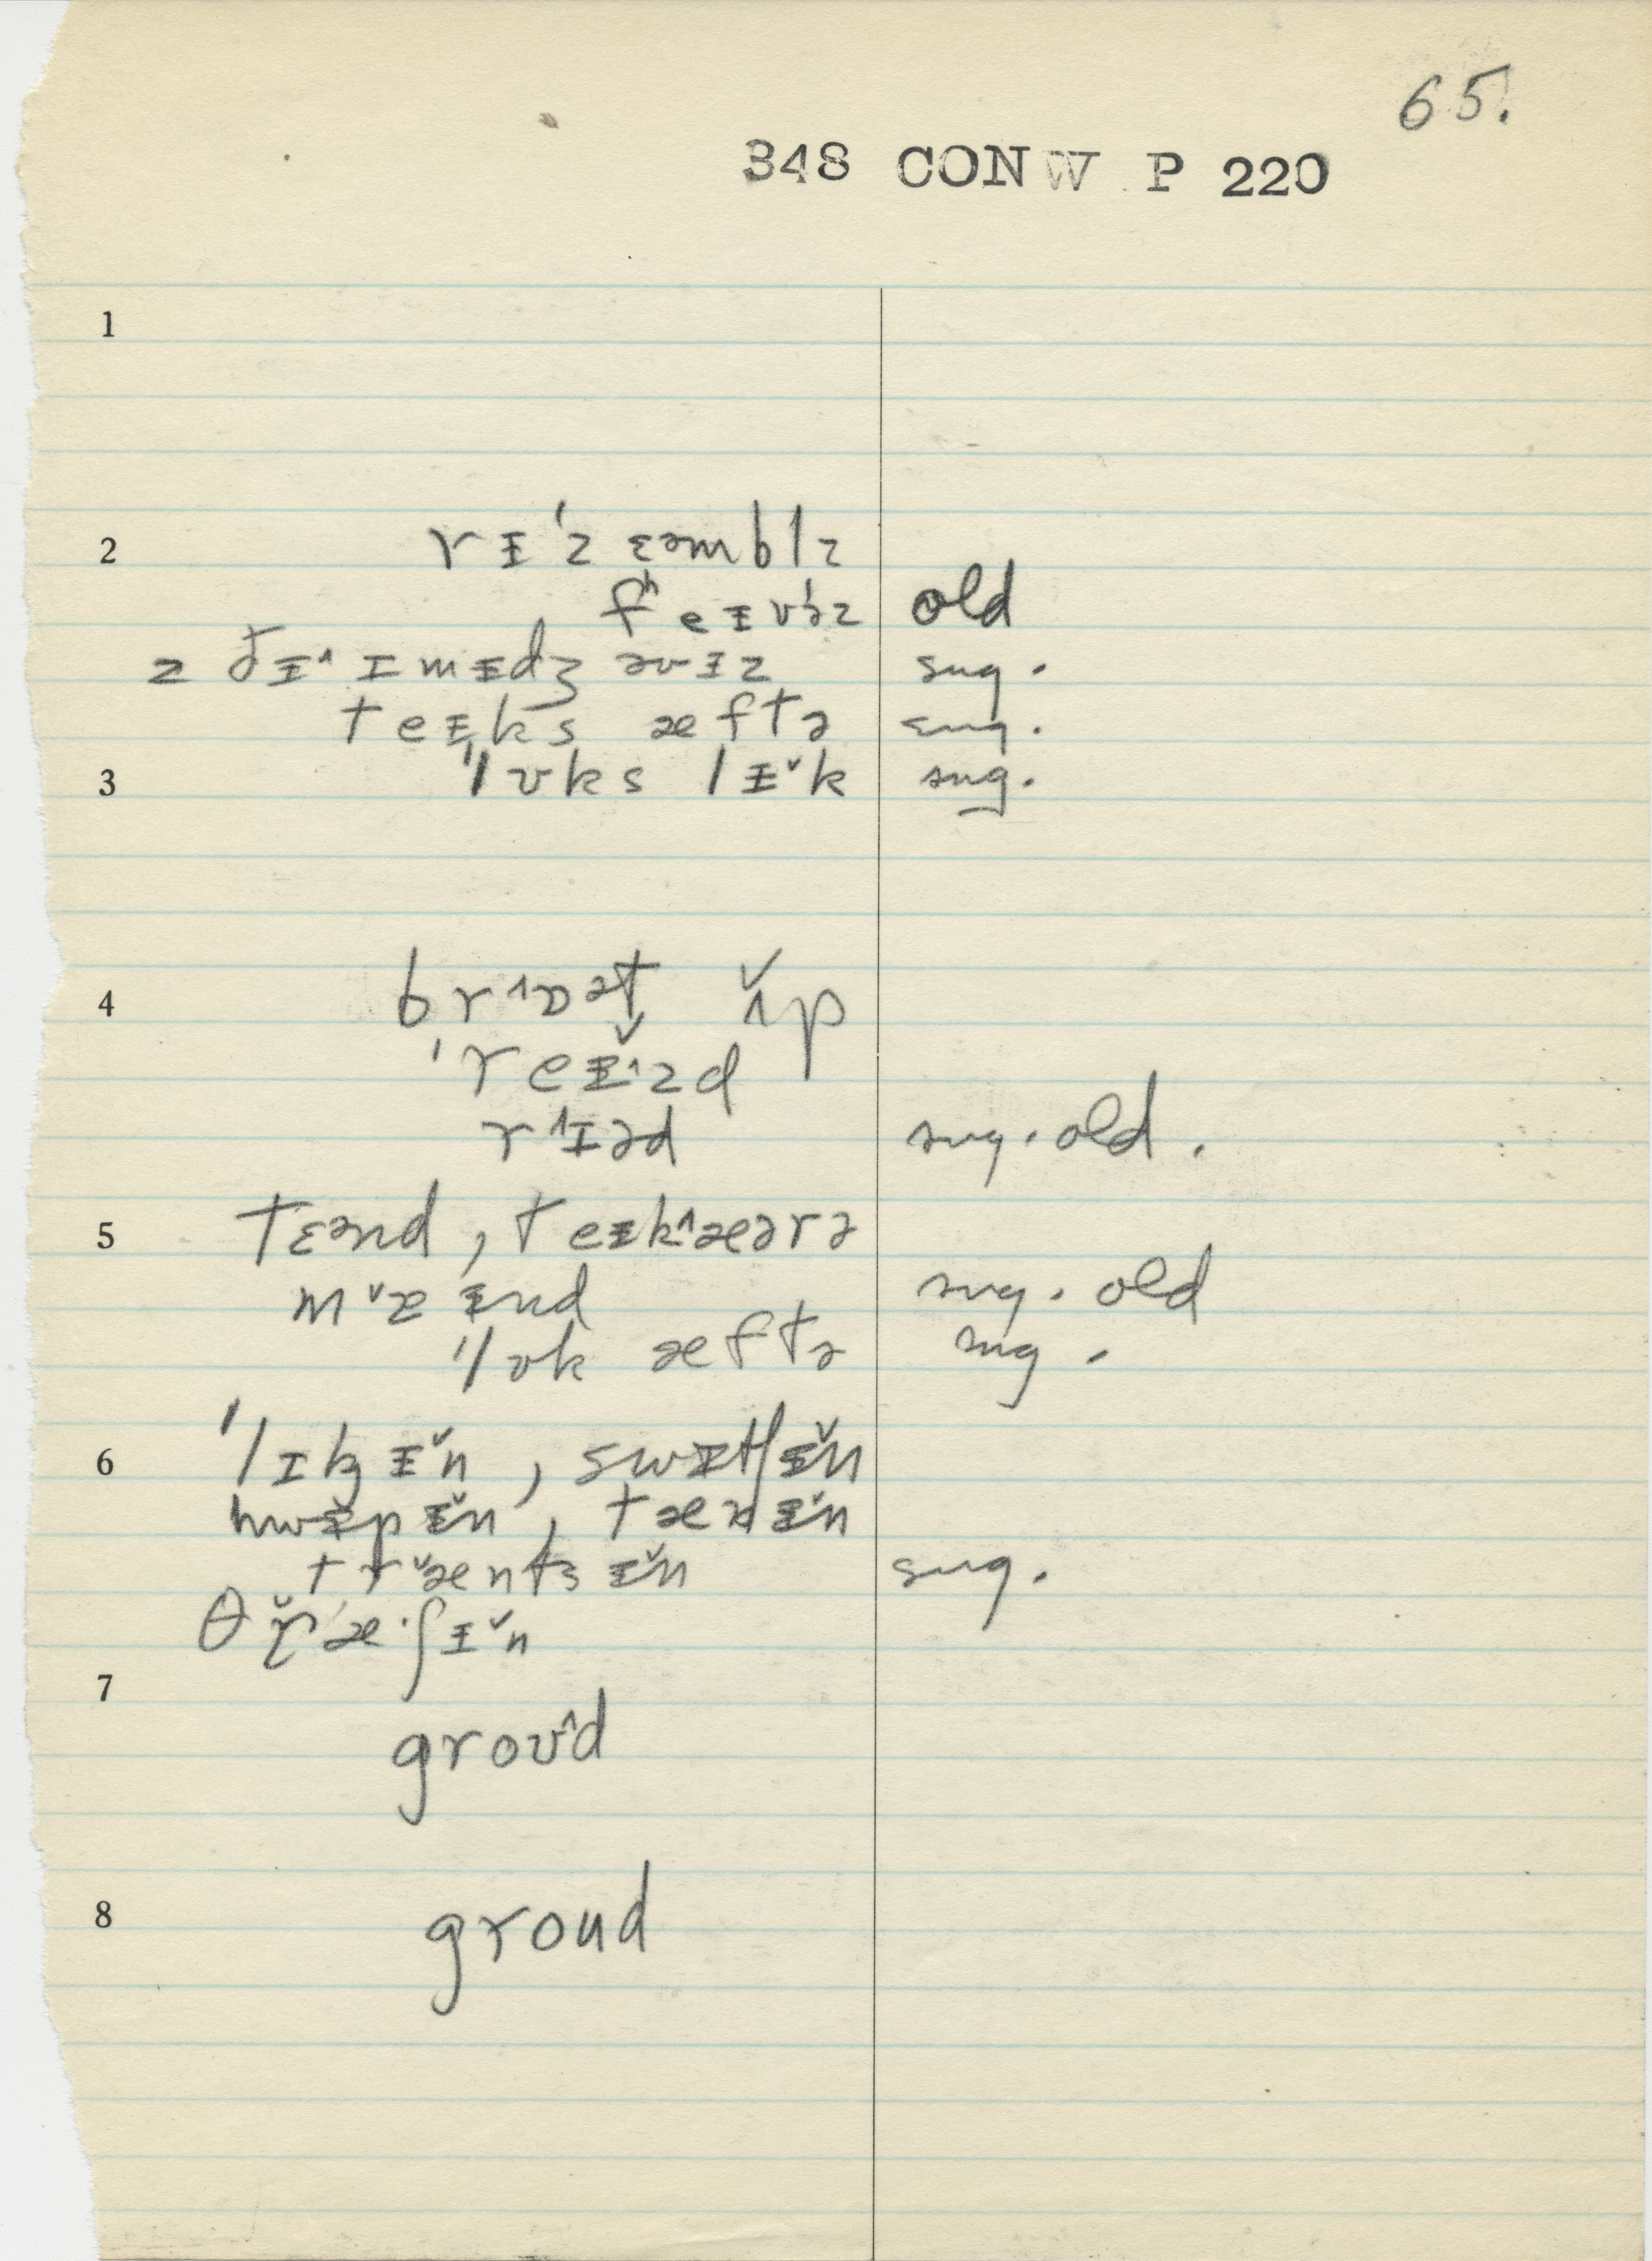 65.
348 CONW P 220
1
2 rɪ̵ˈzɛəmblz
fʰeɪ̵vɚz old
z ðɪ̵˄ ɪmɪ̵dʒ əvɪ̵z sug.
teɪ̵ks æftə sug.
3 ˈlʊks lɪ̵˅k sug.
4 br˄ɒət ʌ̌p
ˈreɪ̵˄zd
r˄ɪəd sug. old.
5 tɛənd, teɪ̵k˄æərə
m˅æɪ̵nd sug. old
ˈlʊk æftə sug.
6 ˈlɪkɪ̵˅n, swɪtʃɪ̵˅n
hwɪ̵pɪ̵˅n, tænɪ̵˅n
tr˅æntsɪ̵˅n sug.
θr̆æ·ʃɪ̵˅n
7
groʊ˄d
8 groud